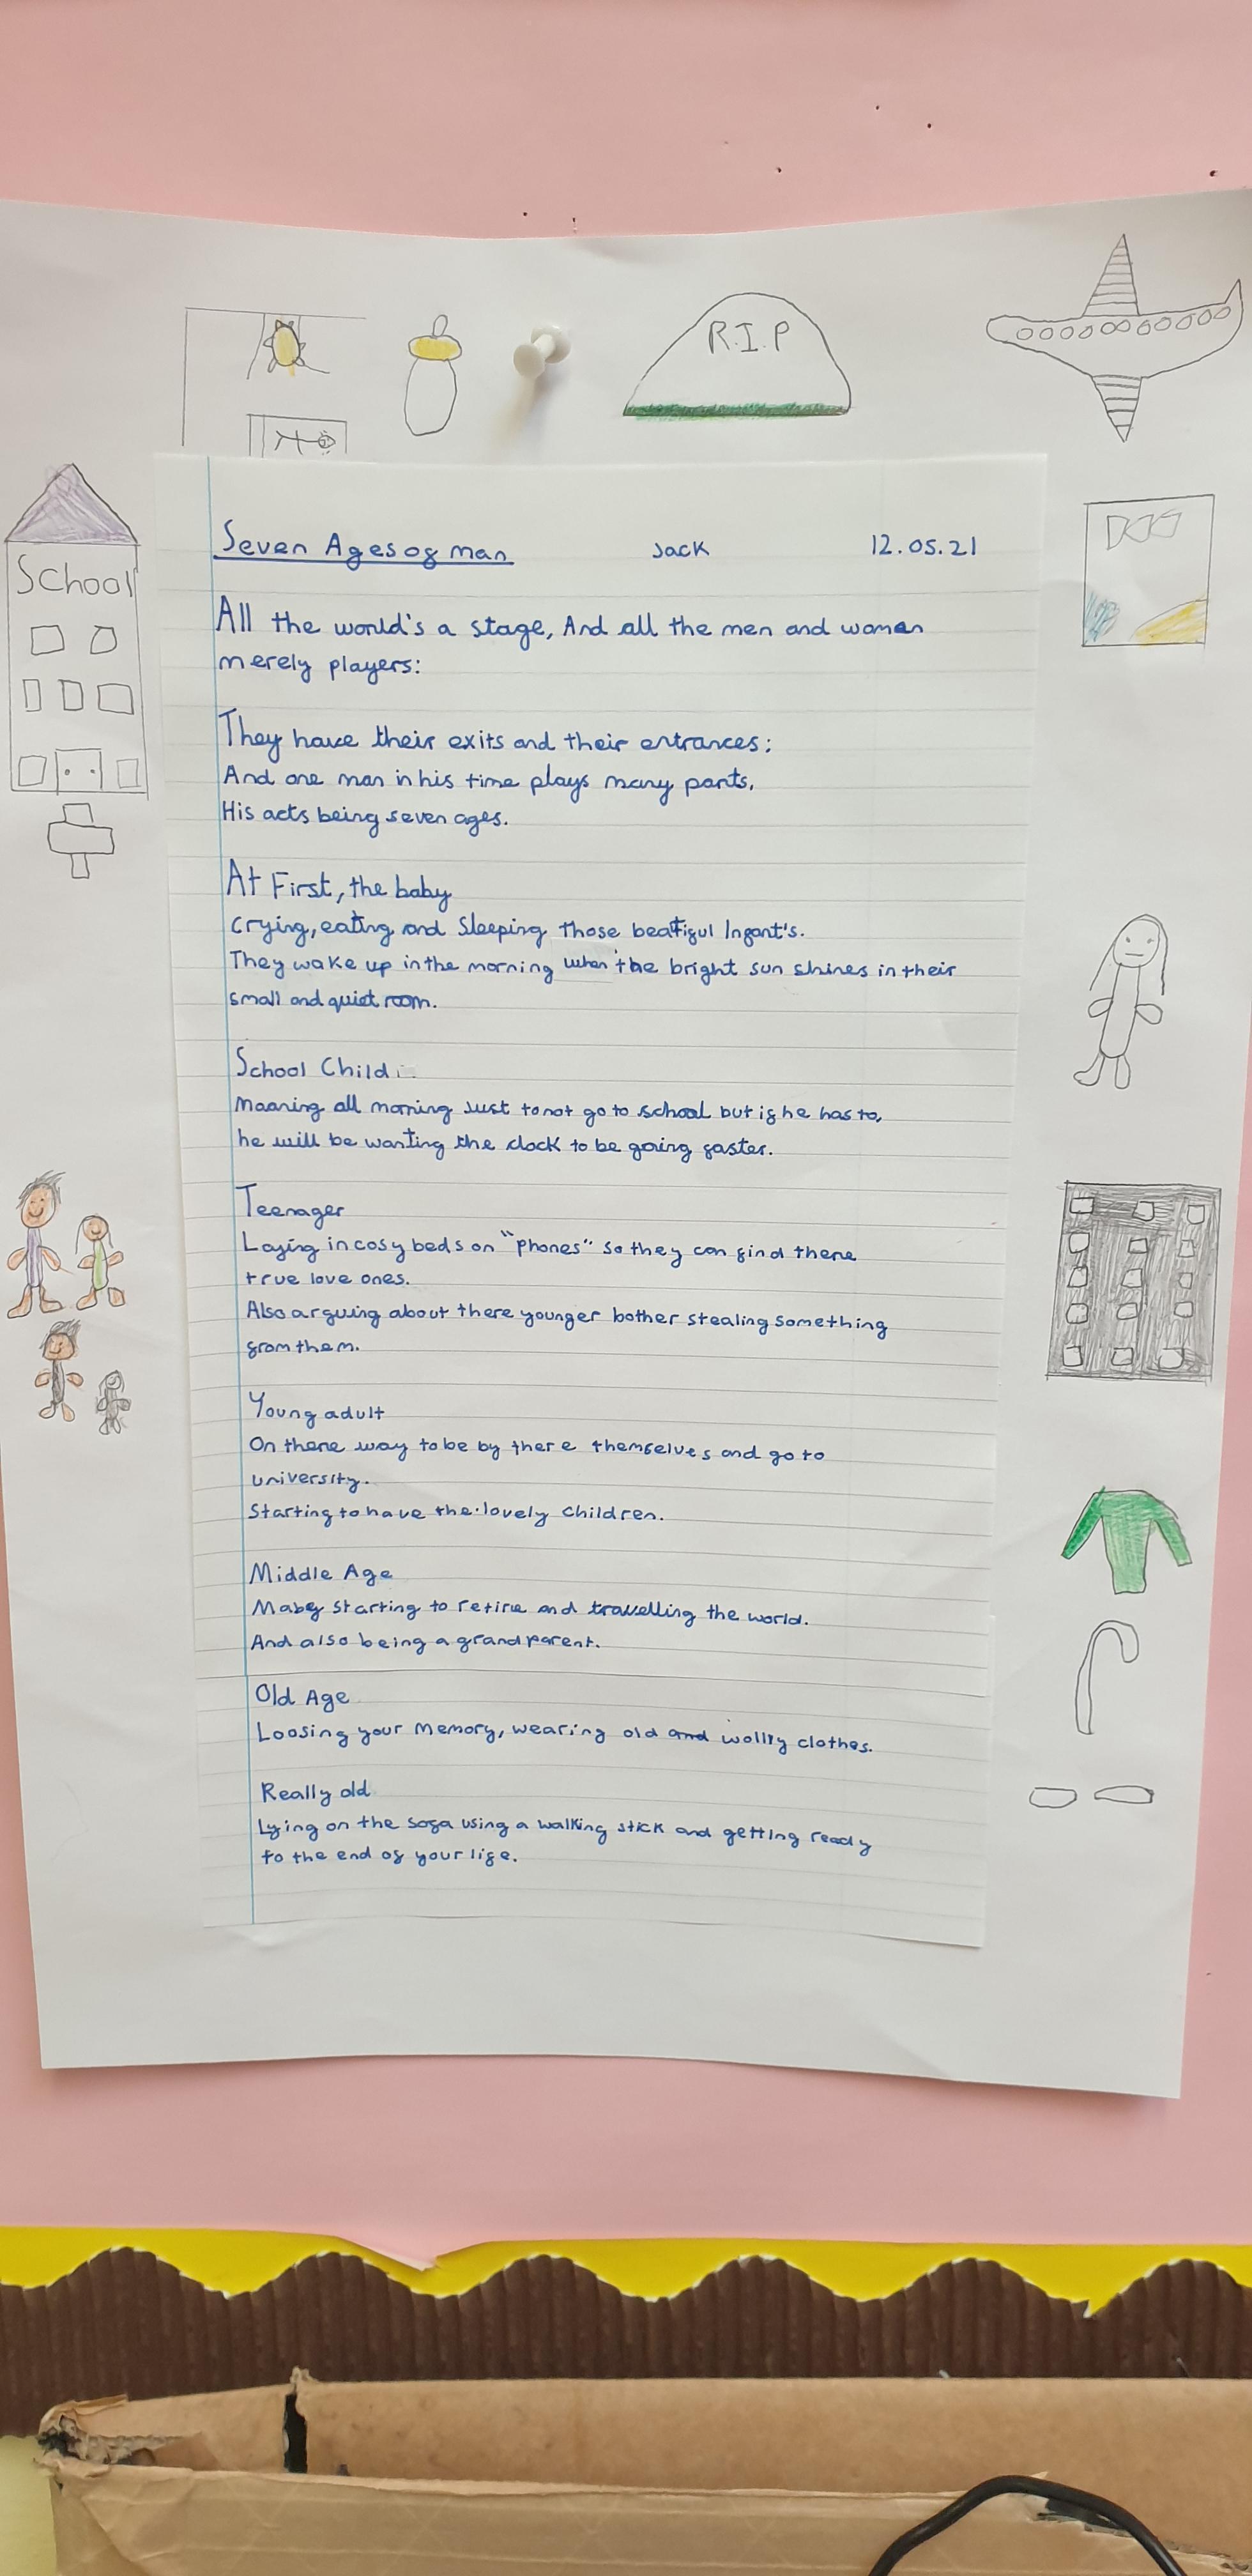 R.I.P
School
Seven Ages of man Jack 12.05.21
All the world's a stage, And all the men and women
merely players:
They have their exits and their entrances;
And one man in his time plays many parts,
His acts being seven ages.
At First, the baby
Crying, eating and Sleeping those beatiful Infant's.
They wake up in the morning when the bright sun shines in their
small and quiet room.
School Child:
Moaning all morning Just to not go to school but if he has to,
he will be wanting the clock to be going faster.
Teenager
Laying in cosy beds on "phones" so they can find there
true love ones.
Also arguing about there younger bother stealing something
from them.
Young adult
On there way to be by there themselves and go to
university.
Starting to have the lovely children.
Middle Age
Maby starting to retire and travelling the world.
And also being a grandparent.
Old Age
Loosing your Memory, wearing old and wollly clothes.
Really old
Lying on the sofa using a walking stick and getting ready
to the end of your life.